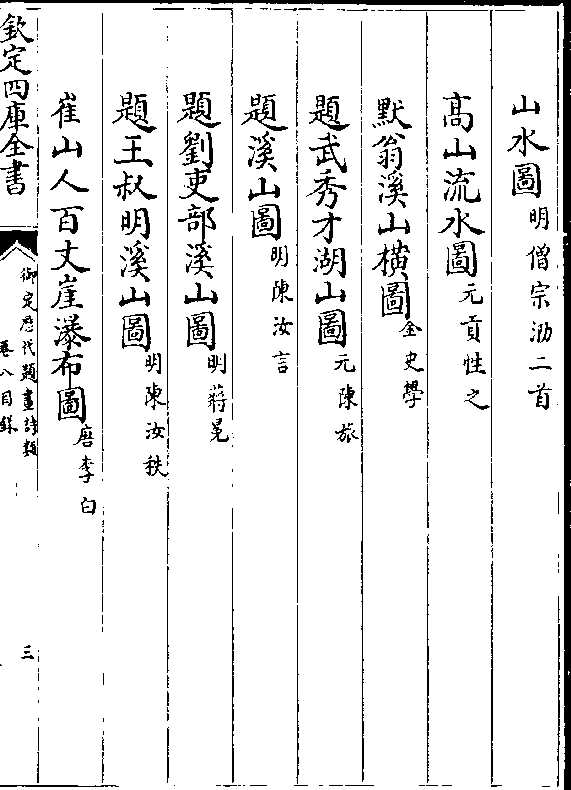 山水圖明僧宗泐二首
高山流水圖元貢性之
默翁溪山橫圖金史學
題武秀才湖山圖元陳旅
題溪山圖明陳汝言
題劉吏部溪山圖明蔣冕
題王叔明溪山圖明陳汝秩
崔山人百丈崖瀑布圖唐李白
欽定四庫全書
御定歷代題畫詩類
卷八目録
三